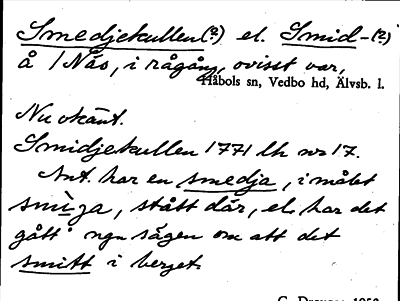 Smedjekullen(?) el. Smid-(?)
å /Näs, i rågång, ovisst var,
Håbols sn, Vedbo hd, Älvsb. l.
Nu okänt.
Smidjekullen 1771 lh nr 17.
Ant. har en smedja, i målet
smìga, stått där, el. har det
gått ngn sägen om att det
smitt i berget.